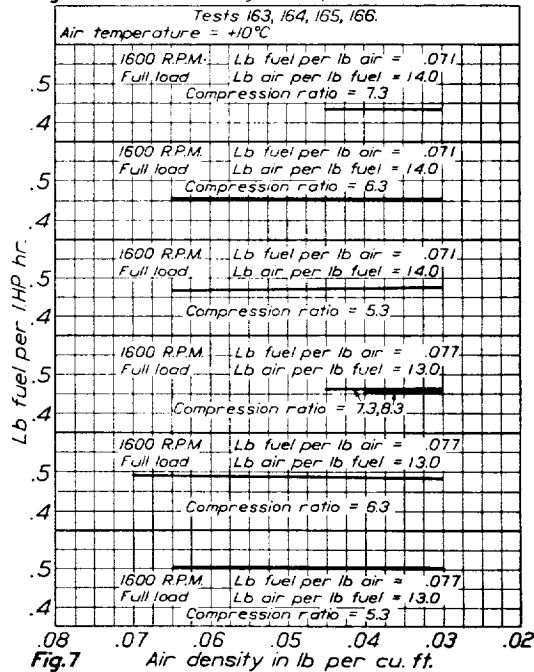 Tests 163, 164, 165, 166.
Air temperature = +10°C
1600 R.P.M. Lb fuel per lb air = .071
.5 Full load Lb air per lb fuel = 14.0
Compression ratio = 7.3
.4
1600 R.P.M. Lb fuel per lb air = .071
Full load Lb air per lb fuel = 14.0
.5 Compression ratio = 6.3
.4
1600 R.P.M. Lb fuel per lb air = .071
.5 Full load Lb air per lb fuel = 14.0
.4 Compression ratio = 5.3
Lb fuel per I.HP hr.
1600 R.P.M. Lb fuel per lb air = .077
.5 Full load Lb air per lb fuel = 13.0
.4 Compression ratio = 7.3,8.3
1600 R.P.M. Lb fuel per lb air = .077
Full load Lb air per lb fuel = 13.0
.5
.4 Compression ratio = 6.3
.5
1600 R.P.M. Lb fuel per lb air = .077
Full load Lb air per lb fuel = 13.0
.4 Compression ratio = 5.3
.08 .07 .06 .05 .04 .03 .02
Fig.7 Air density in lb per cu. ft.